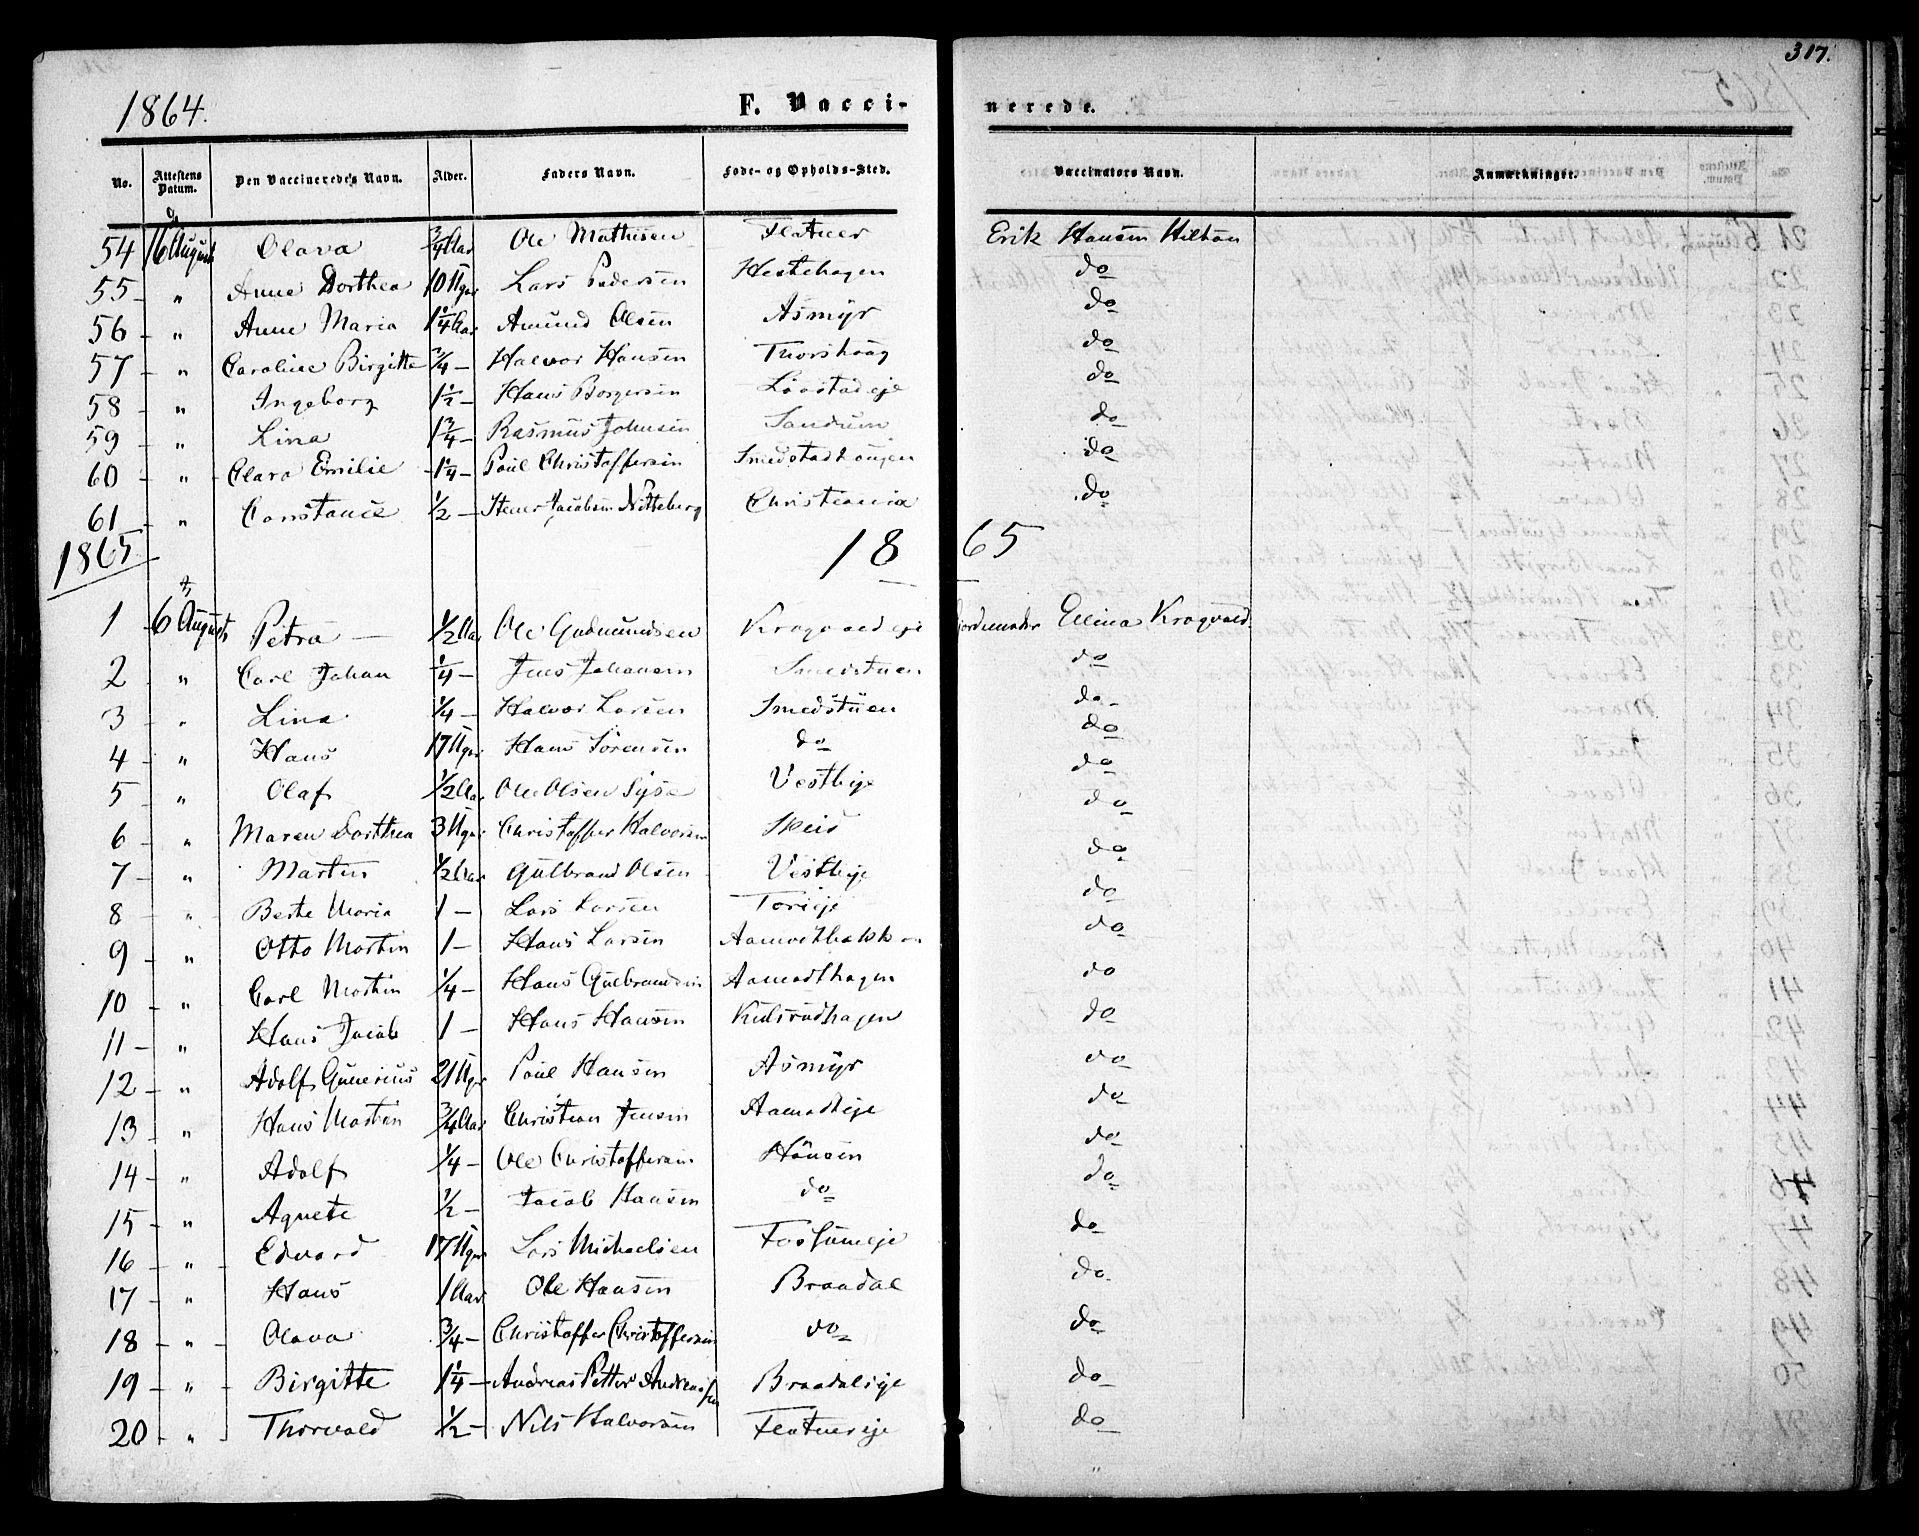 317.
1864. F. Vacci- nerede.
No. Attestens Datum. Den Vaccineredes Navn. Alder. Faders Navn. Føde- og Opholds-Sted. Vaccinators Navn. Anmærkninger.
54 16 August Olava 3/4 Aar Ole Mathisen Flatner Erik Hansen Hilton
55 – " Anne Dorthea 10 Uger Lars Pedersen Hestehagen do
56 – " Anne Maria 1 1/4 Aar Amund Olsen Asmyr do
57 – " Caroline Birgitte 3/4 – Halvor Hansen Thorshoug do
58 – " Ingeborg 1 1/2 – Hans Borgersen do
59 – " Lina 1 3/4 – Rasmus Johnsen Sandum do
60 – " Clara Emilie 1 1/4 – Paul Christoffersen Smedstadhougen do
61 – " Constance 1/2 – Stener Jacobsen Nitteberg Christiania do
1865 18 65
1 – 6 August Petra – 1/2 Aar Ole Gudmundsen Kragvoldeje Jordemoder Ellina Kragvold.
2 – " Carl Johan 1/4 – Jens Johansen Smedstuen do
3 – " Lina 1/4 – Halvor Larsen Smedstuen do
4 – " Hans 17 Uger Hans Sørensen do do
5 – " Olaf 1/2 Aar Ole Olsen Vestbyeje do
6 – " Maren Dorthea 3 Uger Christoffer Halvorsen do
7 – " Martin 1/2 Aar Gulbrand Olsen Vestbyeje do
8 – " Berte Maria 1 – Lars Larsen do
9 – " Otto Martin 1 – Hans Larsen Aamodtbakken do
10 – " Carl Martin 1/4 – Hans Gulbrandsen Aamodthagen do
11 – " Hans Jacob 1 – Hans Hansen Kulsrudhagen do
12 – " Adolf Gunerius 21 Uger Paul Hansen Asmyr do
13 – " Hans Martin 3/4 Aar Christian Jensen Aamodteje do
14 – " Adolf 1/4 – Ole Christoffersen do
15 – " Agnete 1/2 – Jacob Hansen do do
16 – " Edvard 17 Uger Lars Michaelsen Fossumeje do
17 – " Hans 1 Aar Ole Hansen Braadal do
18 – " Olava 3/4 – Christoffer Christoffersen do do
19 – " Birgitte 1 1/4 – Andreas Petter Andreassen Braadaleje do
20 – " Thorvald 1/2 – Nils Halvorsen Flatnereje do